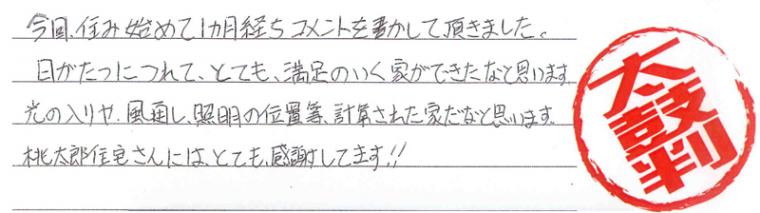 今回、住み始めて1カ月経ちコメントを書かして頂きました。
日がたつにつれて、とても、満足のいく家ができたなと思います
光の入りや、風通し、照明の位置等、計算された家だなと思います。
桃太郎住宅さんには、とても、感謝してます!!
太鼓判